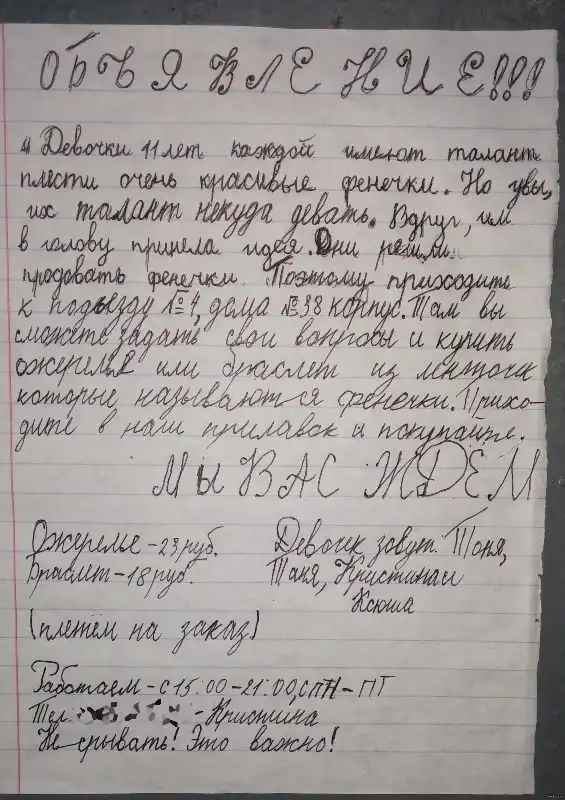 ОБЪЯВЛЕНИЕ!!!
" Девочки 11 лет каждой имеют талант
плести очень красивые фенечки. Но увы,
их талант некуда девать. Вдруг, им
в голову пришла идея. Они решили
продовать фенечки. Поэтому приходить
к подъезду №4, дома №38 корпус. Там вы
сможете задать свои вопросы и купить
ожерелье или браслет из ленточек
которые называются фенечки. Прихо-
дите в наш прилавок и покупайте.
МЫ ВАС ЖДЕМ
Ожерелье - 23 руб. Девочек зовут. Тоня,
Браслет - 18 руб. Таня, Кристина и
Ксюша
(плетём на заказ)
Работаем - с 15:00 - 21:00, с ПН - ПТ
Тел. - Кристина
Не срывать! Это важно!